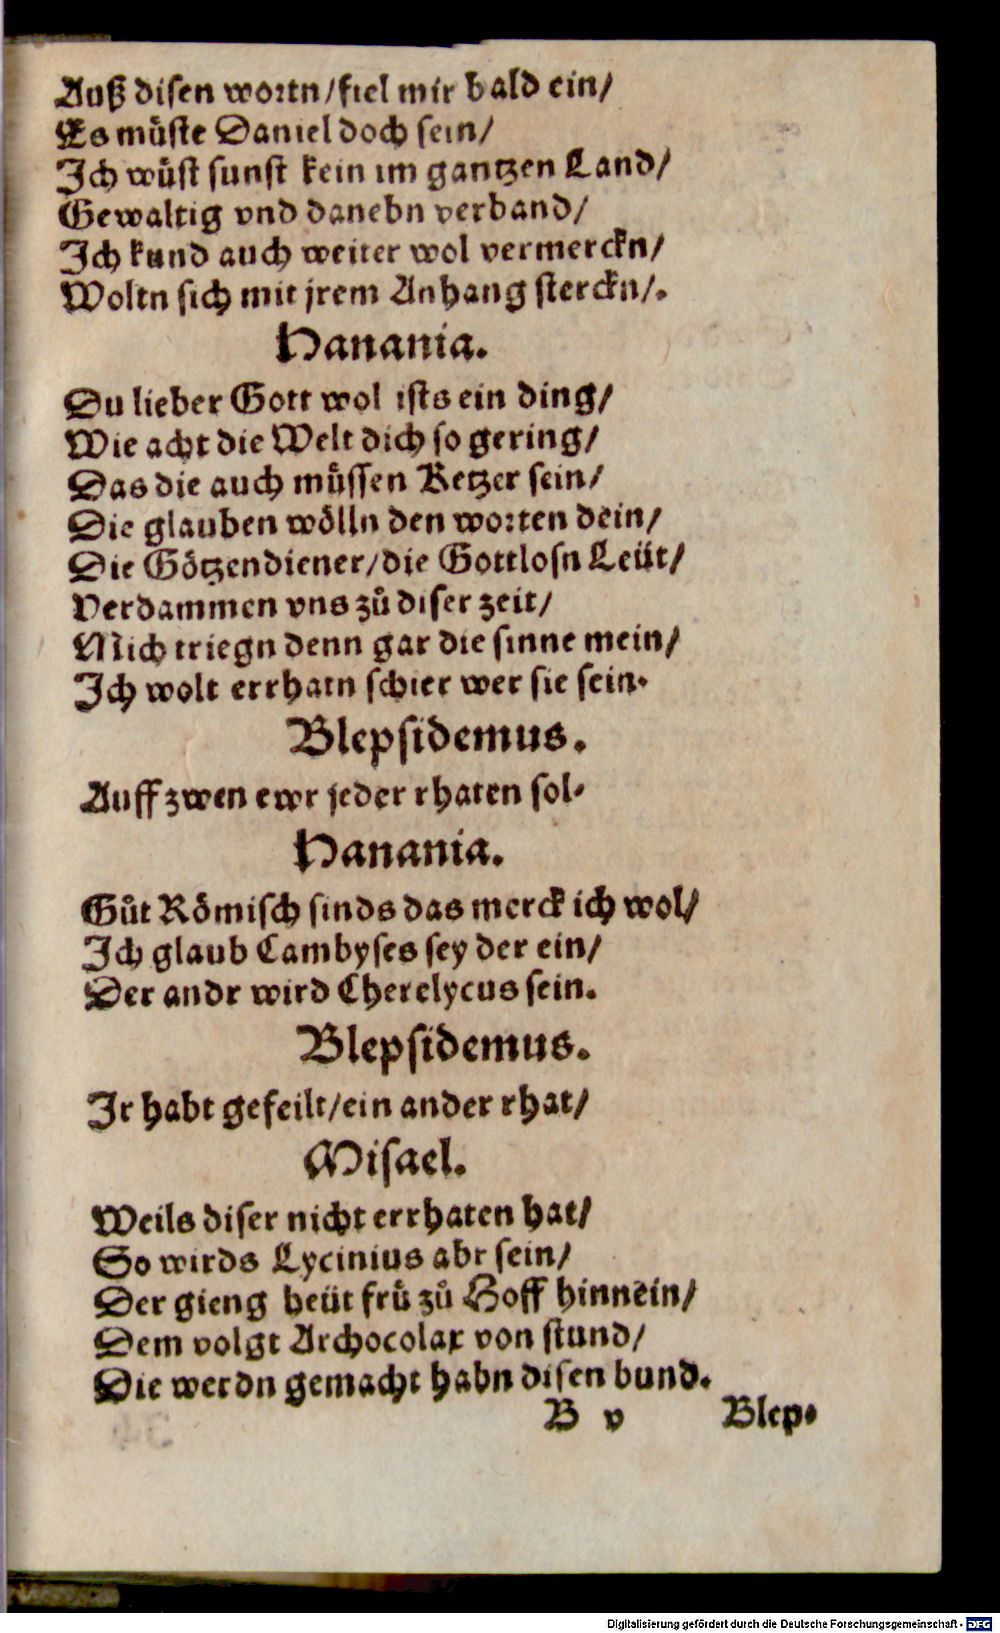 Auß disen wortn/fiel mir bald ein/
Es můste Daniel doch sein/
Ich wůst sunst kein im gantzen Land/
Gewaltig vnd danebn verband/
Ich kund auch weiter wol vermerckn/
Woltn sich mit jrem Anhang sterckn/.
Hanania.
Du lieber Gott wol ists ein ding/
Wie acht die Welt dich so gering/
Das die auch můssen Ketzer sein/
Die glauben wölln den worten dein/
Die Götzendiener/die Gottlosn Leüt/
Verdammen vns zů diser zeit/
Mich triegn denn gar die sinne mein/
Ich wolt errhatn schier wer sie sein.
Blepsidemus.
Auff zwen ewr jeder rhaten sol.
Hanania.
Gůt Römisch sinds das merck ich wol/
Ich glaub Cambyses sey der ein/
Der andr wird Cherelycus sein.
Blepsidemus.
Ir habt gefeilt/ein ander rhat/
Misael.
Weils diser nicht errhaten hat/
So wirds Lycinius abr sein/
Der gieng heüt frů zů Hoff hinnein/
Dem volgt Archocolax von stund/
Die werdn gemacht habn disen bund.
B v Blep.
Digitalisierung gefördert durch die Deutsche Forschungsgemeinschaft - DFG